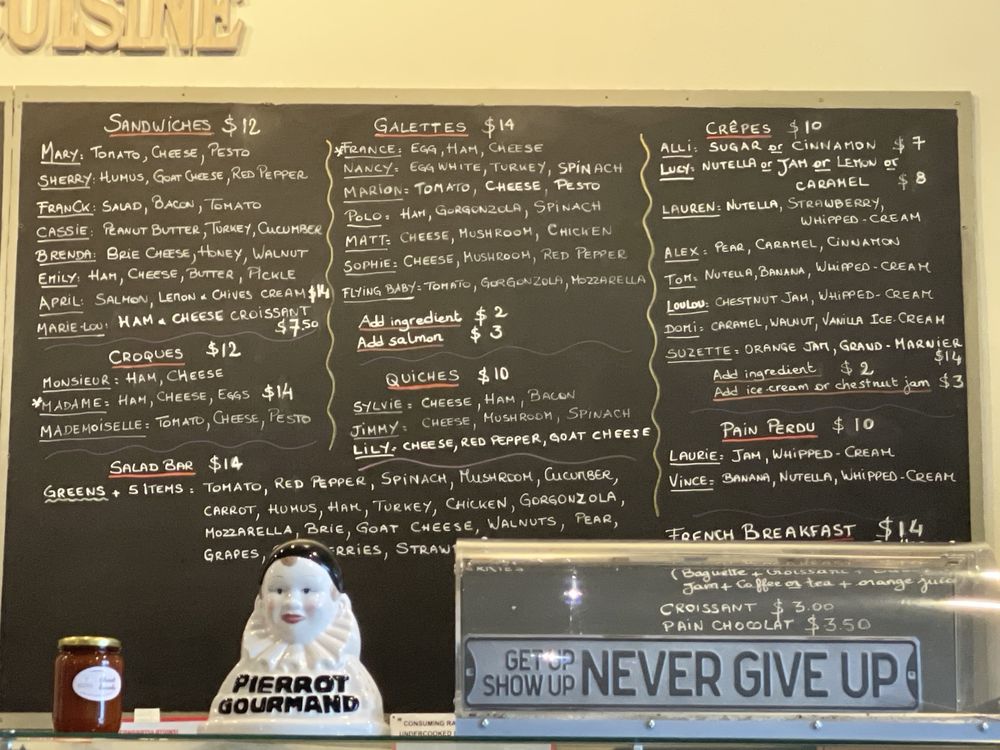 CUISINE
SANDWICHES $12
MARY: TOMATO, CHEESE, PESTO
SHERRY: HUMUS, GOAT CHEESE, RED PEPPER
FRANCK: SALAD, BACON, TOMATO
CASSIE: PEANUT BUTTER, TURKEY, CUCUMBER
BRENDA: BRIE CHEESE, HONEY, WALNUT
EMILY: HAM, CHEESE, BUTTER, PICKLE
APRIL: SALMON, LEMON & CHIVES CREAM $14
MARIE-LOU: HAM & CHEESE CROISSANT
$7.50
CROQUES $12
MONSIEUR: HAM, CHEESE
*MADAME: HAM, CHEESE, EGGS $14
MADEMOISELLE: TOMATO, CHEESE, PESTO
SALAD BAR $14
GREENS + 5 ITEMS: TOMATO, RED PEPPER, SPINACH, MUSHROOM, CUCUMBER,
CARROT, HUMUS, HAM, TURKEY, CHICKEN, GORGONZOLA,
MOZZARELLA, BRIE, GOAT CHEESE, WALNUTS, PEAR,
GRAPES,
GALETTES $14
*FRANCE: EGG, HAM, CHEESE
NANCY: EGG WHITE, TURKEY, SPINACH
MARION: TOMATO, CHEESE, PESTO
POLO: HAM, GORGONZOLA, SPINACH
MATT: CHEESE, MUSHROOM, CHICKEN
SOPHIE: CHEESE, MUSHROOM, RED PEPPER
FLYING BABY: TOMATO, GORGONZOLA, MOZZARELLA
Add ingredient $2
Add salmon $3
QUICHES $10
SYLVIE: CHEESE, HAM, BACON
JIMMY: CHEESE, MUSHROOM, SPINACH
LILY: CHEESE, RED PEPPER, GOAT CHEESE
CRÊPES $10
ALLI: SUGAR or CINNAMON $7
LUCY: NUTELLA or JAM or LEMON or
CARAMEL $8
LAUREN: NUTELLA, STRAWBERRY,
WHIPPED-CREAM
ALEX: PEAR, CARAMEL, CINNAMON
TOM: NUTELLA, BANANA, WHIPPED-CREAM
LOULOU: CHESTNUT JAM, WHIPPED-CREAM
DOMI: CARAMEL, WALNUT, VANILLA ICE-CREAM
SUZETTE: ORANGE JAM, GRAND-MARNIER
$14
Add ingredient $2
Add ice cream or chestnut jam $3
PAIN PERDU $10
LAURIE: JAM, WHIPPED-CREAM
VINCE: BANANA, NUTELLA, WHIPPED-CREAM
FRENCH BREAKFAST $14
(Baguette + Croissant +
Jam + Coffee or tea + orange juice
CROISSANT $3.00
PAIN CHOCOLAT $3.50
GET UP
SHOW UP
NEVER GIVE UP
PIERROT
GOURMAND
"CONSUMING RA
UNDERCOOKED